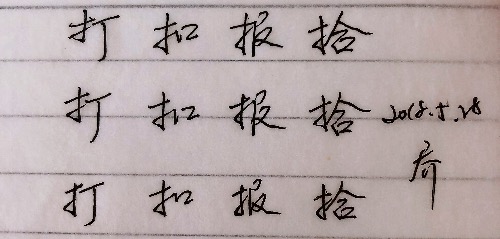 打 扣 报 拾
打 扣 报 拾 2018.5.28
打 扣 报 拾